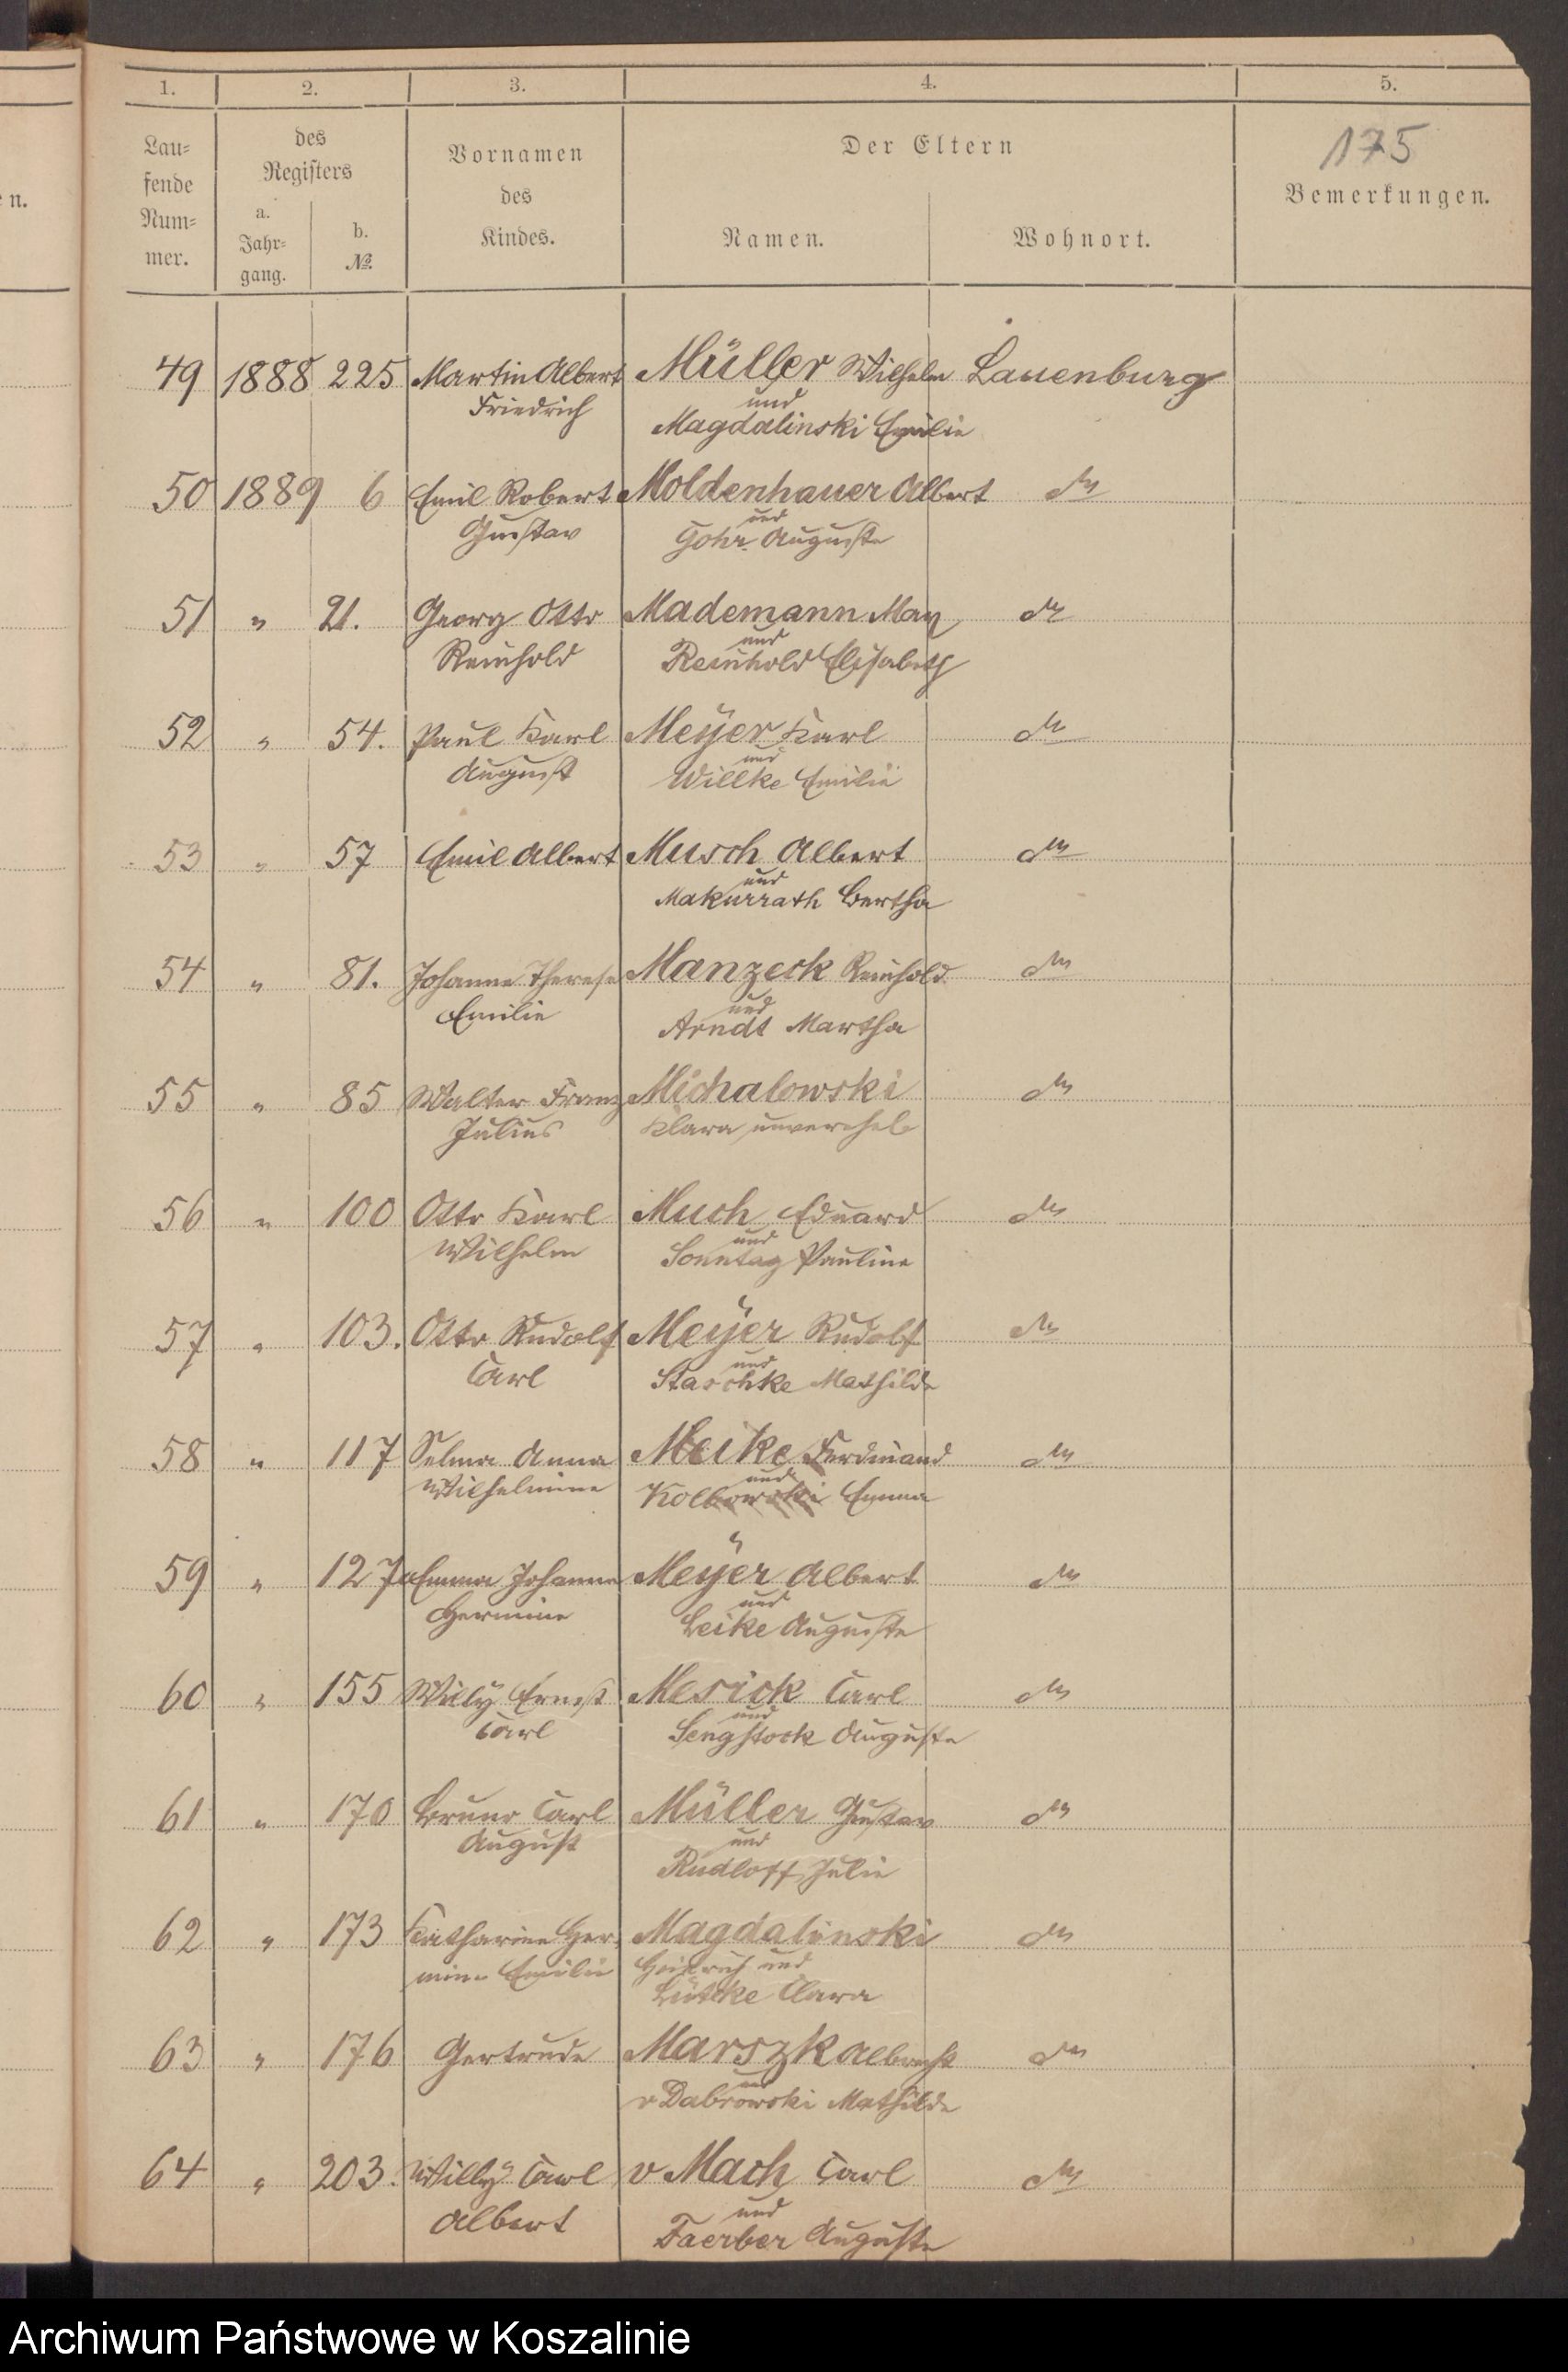 en.
1. 2. 3. 4. 5.
Lau=
fende
Num=
mer.
des
Registers
a.
Jahr=
gang.
b.
№.
Vornamen
des
Kindes.
Der Eltern
Namen. Wohnort.
175
Bemerkungen.
49 1888 225 Martin Albert Müller Wilhelm Lauenburg
Friedrich und
Magdalinski Emilie
50 1889 6 Emil Robert Moldenhauer Albert do
Gustav und
Gohr Auguste
51 " 21. Georg Otto Mademann Max do
Reinhold und
Reinhold Elisabeth
52 " 54. Paul Karl Meyer Karl do
August und
Willke Emilie
53 " 57 Emil Albert Musch Albert do
und
Makurrath Bertha
54 " 81. Johanna Therese Manzeck Reinhold do
Emilie und
Arndt Martha
55 " 85 Walter Franz Michalowski do
Julius Klara, unverehel.
56 " 100 Otto Karl Much Eduard do
Wilhelm und
Sonntag Pauline
57 " 103. Otto Rudolf Meyer Rudolf do
Carl und
Staschke Mathilde
58 " 117 Selma Anna Meike Ferdinand do
Wilhelmine und
Kolbowski Emma
59 " 127 Emma Johanna Meyer Albert do
Hermine und
Leike Auguste
60 " 155 Willy Ernst Mesick Carl do
Carl und
Sengstock Auguste
61 " 170 Bruno Carl Müller Gustav do
August und
Rudloff Julie
62 " 173 Katharine Her- Magdalinski do
mine Emilie Heinrich und
Lütcke Clara
63 " 176 Gertrude Marszk Albrecht do
und
v Dabrowski Mathilde
64 " 203. Willy Carl v Mach Carl do
Albert und
Faerber Auguste
Archiwum Państwowe w Koszalinie